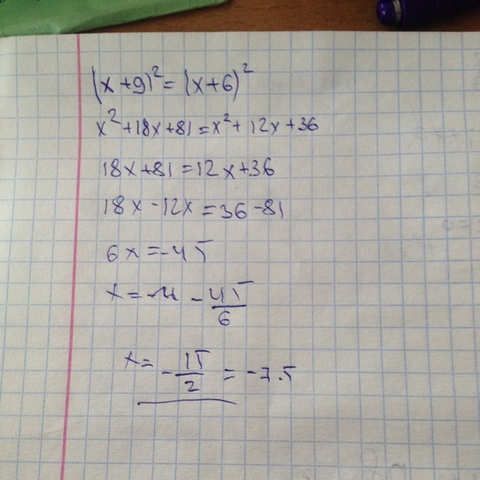 (x+9)² = (x+6)²
x²+18x+81 = x²+12x+36
18x+81 = 12x+36
18x-12x = 36-81
6x = -45
x = - 45/6
x = - 15/2 = -7.5